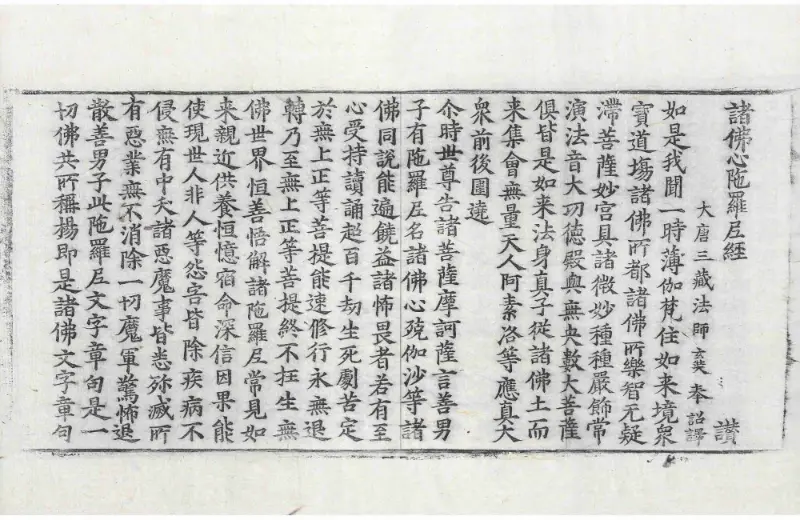 諸佛心陁羅尼経　讃
大唐三藏法師玄奘奉詔譯
如是我聞一時薄伽梵住如来境衆
寳道塲諸佛所都諸佛所樂智无疑
滯菩薩妙宮具諸微妙種種嚴飾常
演法音大㓛德殿與無央數大菩薩
俱皆是如来法身真子從諸佛土而
来集會無量天人阿素洛等應真大
衆前後圍遶
尒時世尊告諸菩薩摩訶薩言善男
子有陁羅尼名諸佛心殑伽沙等諸
佛同說能遍饒益諸怖畏者若有至
心受持讀誦超百千劫生死劇苦定
於無上正等菩提能速修行永無退
轉乃至無上正等菩提終不抂生無
佛世界恒善悟解諸陁羅尼常見如
来親近供養恒憶宿命深信因果能
使現世人非人等怨害皆除疾病不
侵無有中夭諸惡魔事皆悉殄滅所
有惡業無不消除一切魔軍驚怖退
散善男子此陁羅尼文字章句是一
切佛共所稱揚即是諸佛文字章句